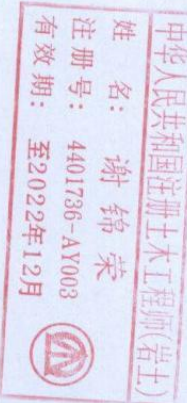 中华人民共和国注册土木工程师(岩土)
姓 名: 谢锦荣
注册号: 4401736-AY003
有效期: 至2022年12月